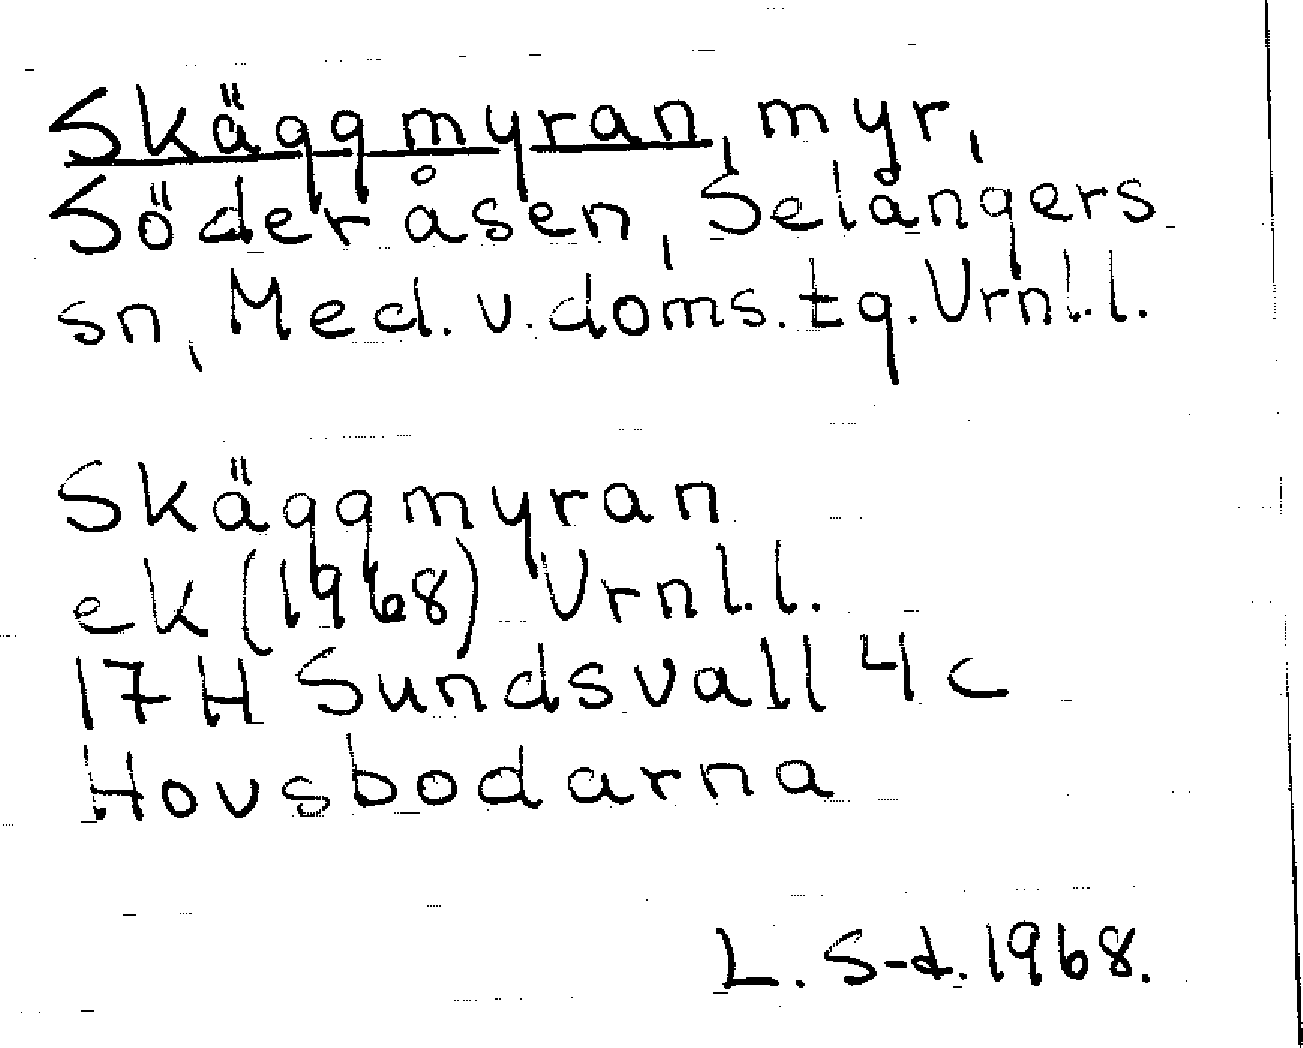 Skäggmyran, myr,
Söder åsen, Selångers
sn, Med. v. doms. tg. Vrnl.l.
Skäggmyran
ek (1968) Vrnl.l.
17H Sundsvall 4c
Hovsbodarna
L. S-d. 1968.